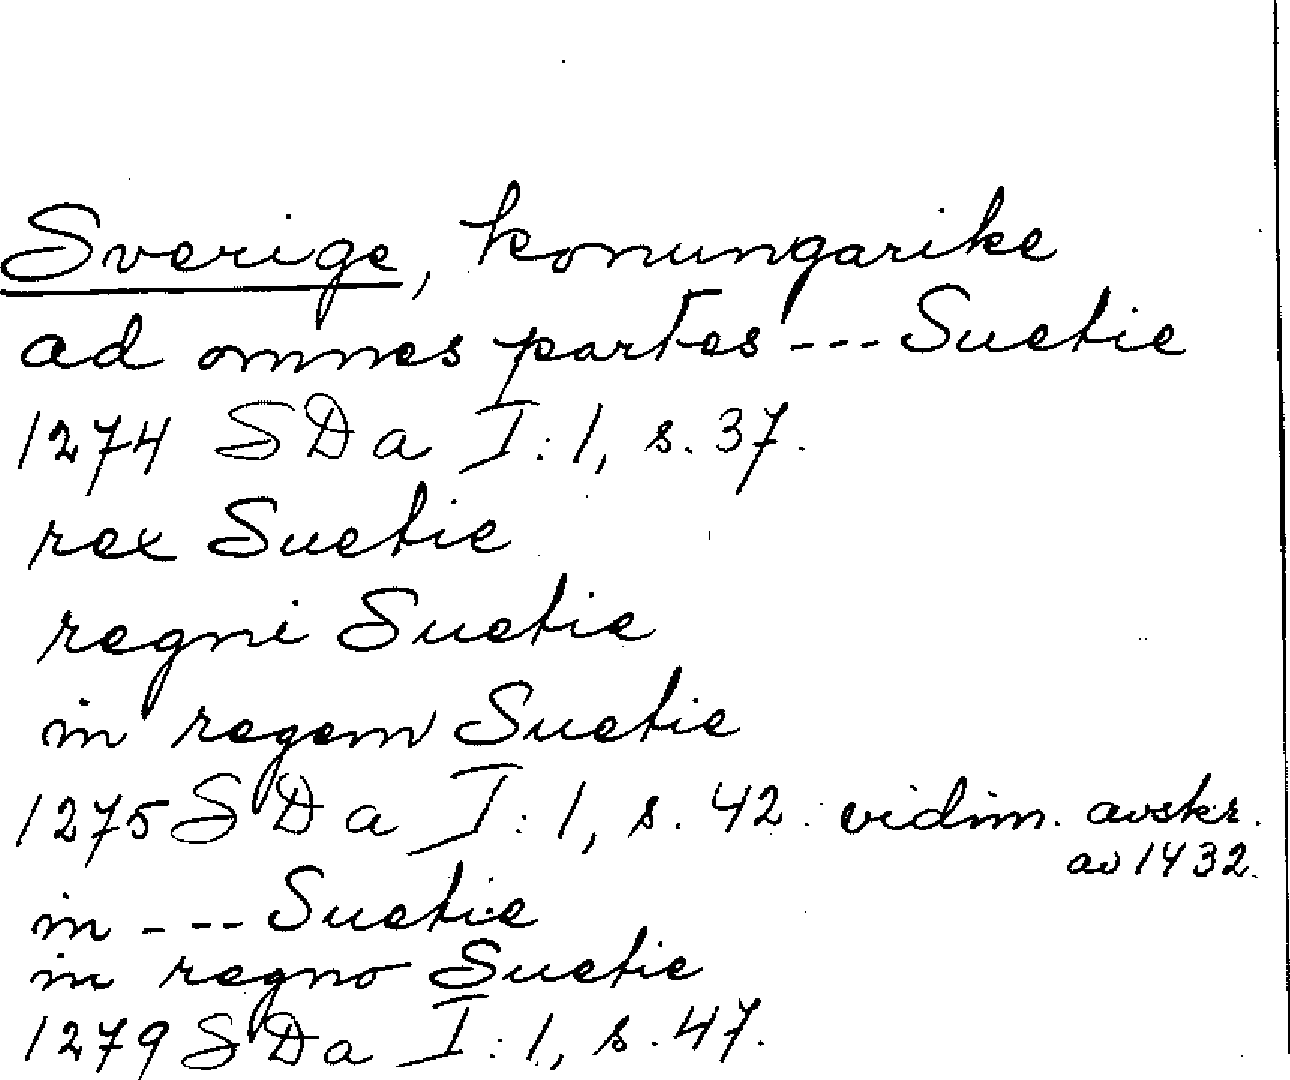 Sverige, konungarike
ad omnes partes --- Suetie
1274 SDa I:1, s. 37.
rex Suetie
regni Suetie
in regem Suetie
1275 SDa I:1, s. 42. vidim. avskr.
av 1432.
in --- Suetie
in regno Suetie
1279 SDa I:1, s. 47.